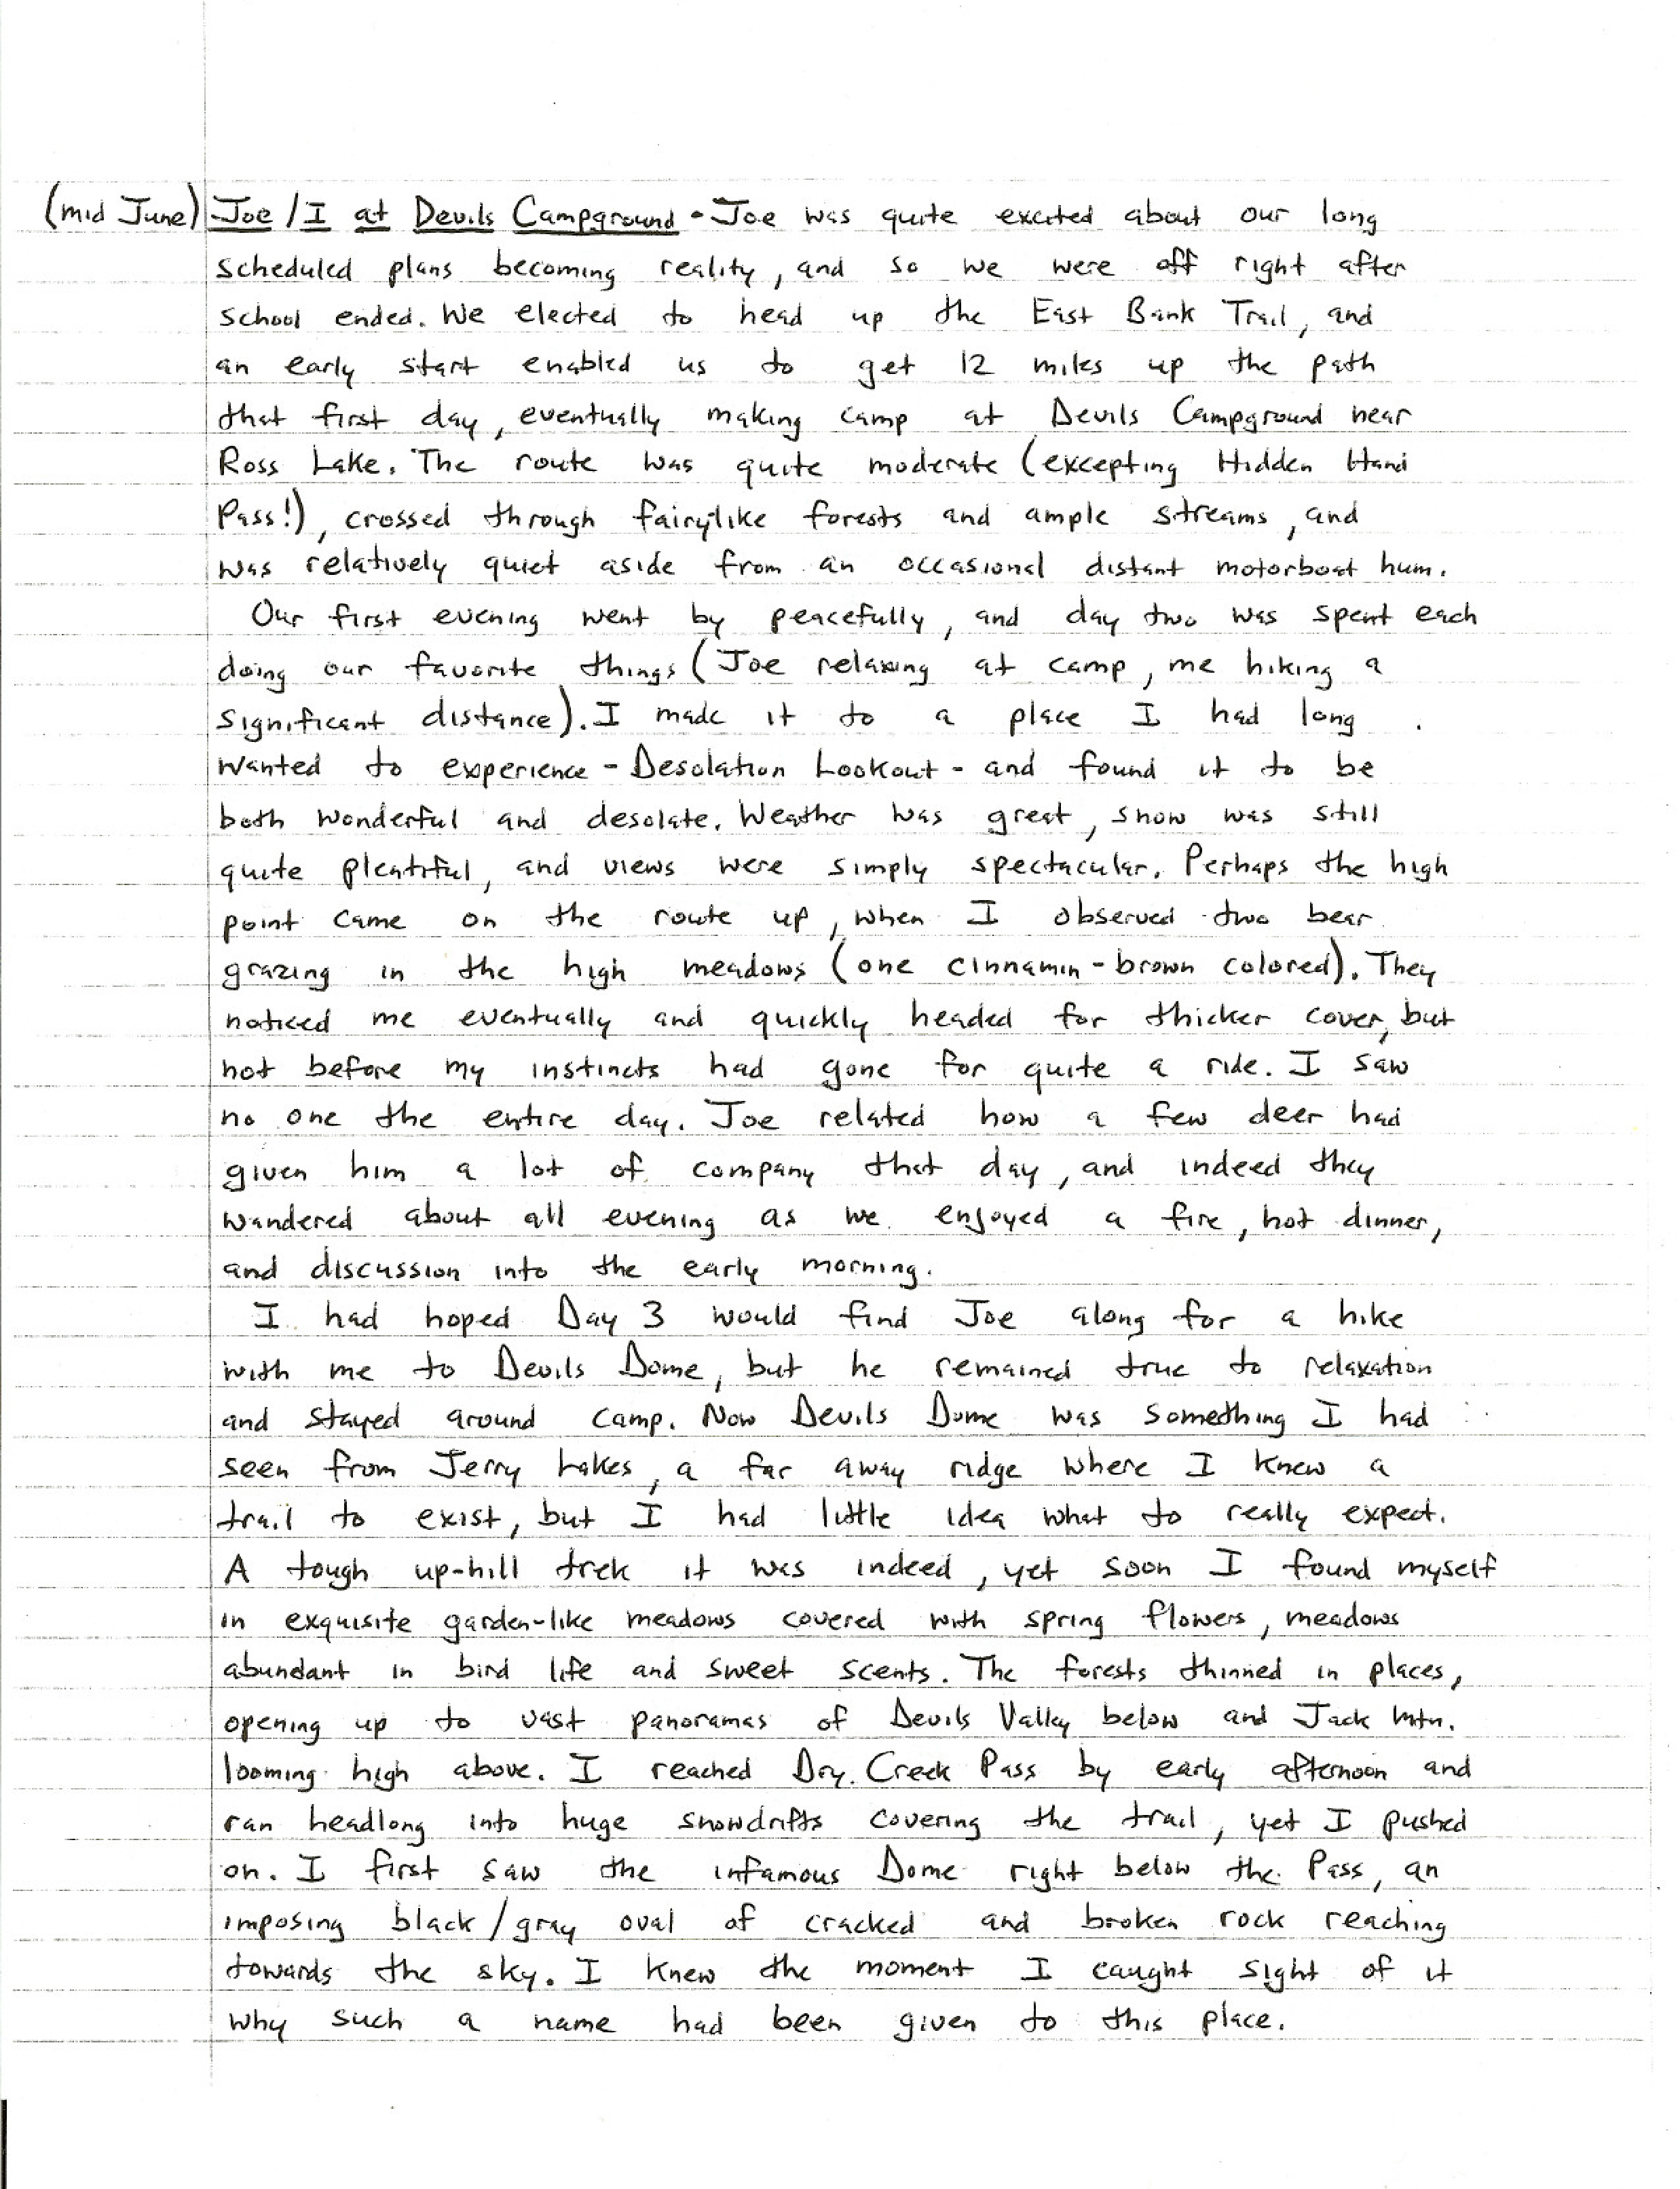 (mid June) Joe / I at Devils Campground - Joe was quite excited about our long
scheduled plans becoming reality, and so we were off right after
school ended. We elected to head up the East Bank Trail, and
an early start enabled us to get 12 miles up the path
that first day, eventually making camp at Devils Campground near
Ross Lake. The route was quite moderate (excepting Hidden Hand
Pass!), crossed through fairylike forests and ample streams, and
was relatively quiet aside from an occasional distant motorboat hum.
Our first evening went by peacefully, and day two was spent each
doing our favorite things (Joe relaxing at camp, me hiking a
significant distance). I made it to a place I had long
wanted to experience - Desolation Lookout - and found it to be
both wonderful and desolate. Weather was great, snow was still
quite plentiful, and views were simply spectacular. Perhaps the high
point came on the route up, when I observed two bear
grazing in the high meadows (one cinnamin-brown colored). They
noticed me eventually and quickly headed for thicker cover, but
not before my instincts had gone for quite a ride. I saw
no one the entire day. Joe related how a few deer had
given him a lot of company that day, and indeed they
wandered about all evening as we enjoyed a fire, hot dinner,
and discussion into the early morning.
I had hoped Day 3 would find Joe along for a hike
with me to Devils Dome, but he remained true to relaxation
and stayed around camp. Now Devils Dome was something I had
seen from Jerry Lakes, a far away ridge where I knew a
trail to exist, but I had little idea what to really expect.
A tough up-hill trek it was indeed, yet soon I found myself
in exquisite garden-like meadows covered with spring flowers, meadows
abundant in bird life and sweet scents. The forests thinned in places,
opening up to vast panoramas of Devils Valley below and Jack Mtn.
looming high above. I reached Dry Creek Pass by early afternoon and
ran headlong into huge snowdrifts covering the trail, yet I pushed
on. I first saw the infamous Dome right below the Pass, an
imposing black/gray oval of cracked and broken rock reaching
towards the sky. I knew the moment I caught sight of it
why such a name had been given to this place.